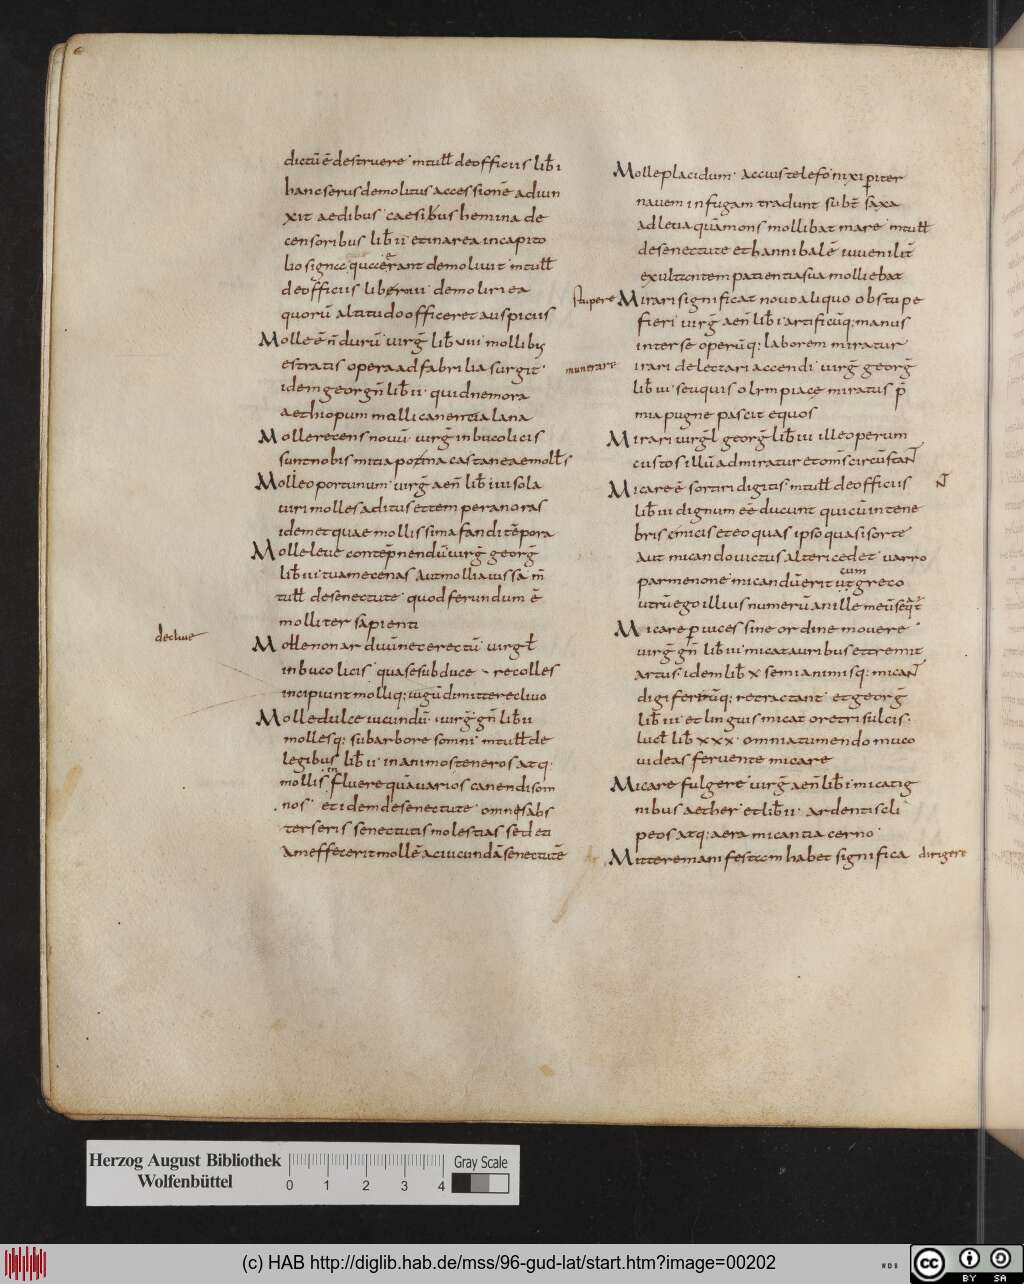 dictū ē destruere · mtull̄ de officiis lib̄ i
hanc serus demolitus accessionē adiun
xit aedibus · caesibus hemina de
censoribus lib̄ ii et in area in capito
lio signa quae erant demoliuit mtull̄
de officiis liber iii demoliri ea
quorū altitudo officeret auspiciis
Molle ē n̄ durū · uirḡ lib̄ viii mollib;
estratis opera ad fabrilia surgit ·
idem georgn̄ lib̄ ii · quid nemora
aethiopum molli canentia lana
Molle recens nouū · uirḡ in bucolicis
sunt nobis mitia poma castaneae molles
Molle oportunum · uirḡ aen̄ lib̄ iiii sola
uiri molles aditus et tempera noras
idem et quae mollissima fandi tēpora
Molle leue contēpnendū uirḡ georḡ
lib̄ iii tua mecenas aut mollia iussa · m̄
tull̄ de senectute · quod ferundum ē
molliter sapienti
decliue
Molle non arduū nec erectū · uirgl̄
in bucolicis · qua se subduce · re colles
incipiunt molliq; iugū dimittere cliuo
Molle dulce iucundū · uirḡ gn̄ lib̄ ii
mollesq; sub arbore somni · mtull̄ de
legibus lib̄ ii in animos teneros atq·
mollis fluere quā uarios canendi som
nos · et idem de senectute · omnes abs
terseris senectutis molestias sed eti
am effecerit mollē ac iucundā senectutē
Molle placidum · accius telefo nixi p̱iter
nauem in fugam tradunt sub t̄ saxa
ad leuia quā mons mollibat mare · mtull̄
de senectute et hannibalē iuuenilit̄
exultantem patientia sua molliebat
stupere
Mirari significat nouo aliquo obstupe
fieri uirḡ aen̄ lib̄ i artificūq; manus
inter se operūq; laborem miratur
munerare
irari delectari accendi · uirḡ georḡ
lib̄ iii seu quis olympiace miratus p̄
mia pugne pascit equos
Mirari uirgl̄ georḡ lib̄ iiii ille operum
custos illū admiratur et oms̄ circūstant
Micare ē sortiri digitis · mtull̄ de officiis
lib̄ iii dignum eē ducunt quicū in tene
bris emicis et eo quas ipso quasi sorte
aut micando uictus alteri cedet · uarro
parmenone · micandū erit ut greco
cum
utrū ego illius numerū an ille meū seqt̄
Micare p̱ uices sine ordine mouere ·
uirḡ gn̄ lib̄ iii micat auribus et tremit
artus · idem lib̄ x semianimisq; micant
digi ferrūq; retractant · et georḡ
lib̄ iii et linguis micat ore trisulcis ·
lucl̄ lib̄ xxx · omnia tum endo muco
uideas feruente micare
Micare fulgere · uirḡ aen̄ lib̄ i micat ig
nibus aether · et lib̄ ii · ardentis cli
peos atq; aera micantia cerno ·
Mittere manifestam habet significa
dirigere
Herzog August Bibliothek
Wolfenbüttel
0 1 2 3 4
Gray Scale
(c) HAB http://diglib.hab.de/mss/96-gud-lat/start.htm?image=00202
WDB
cc BY SA